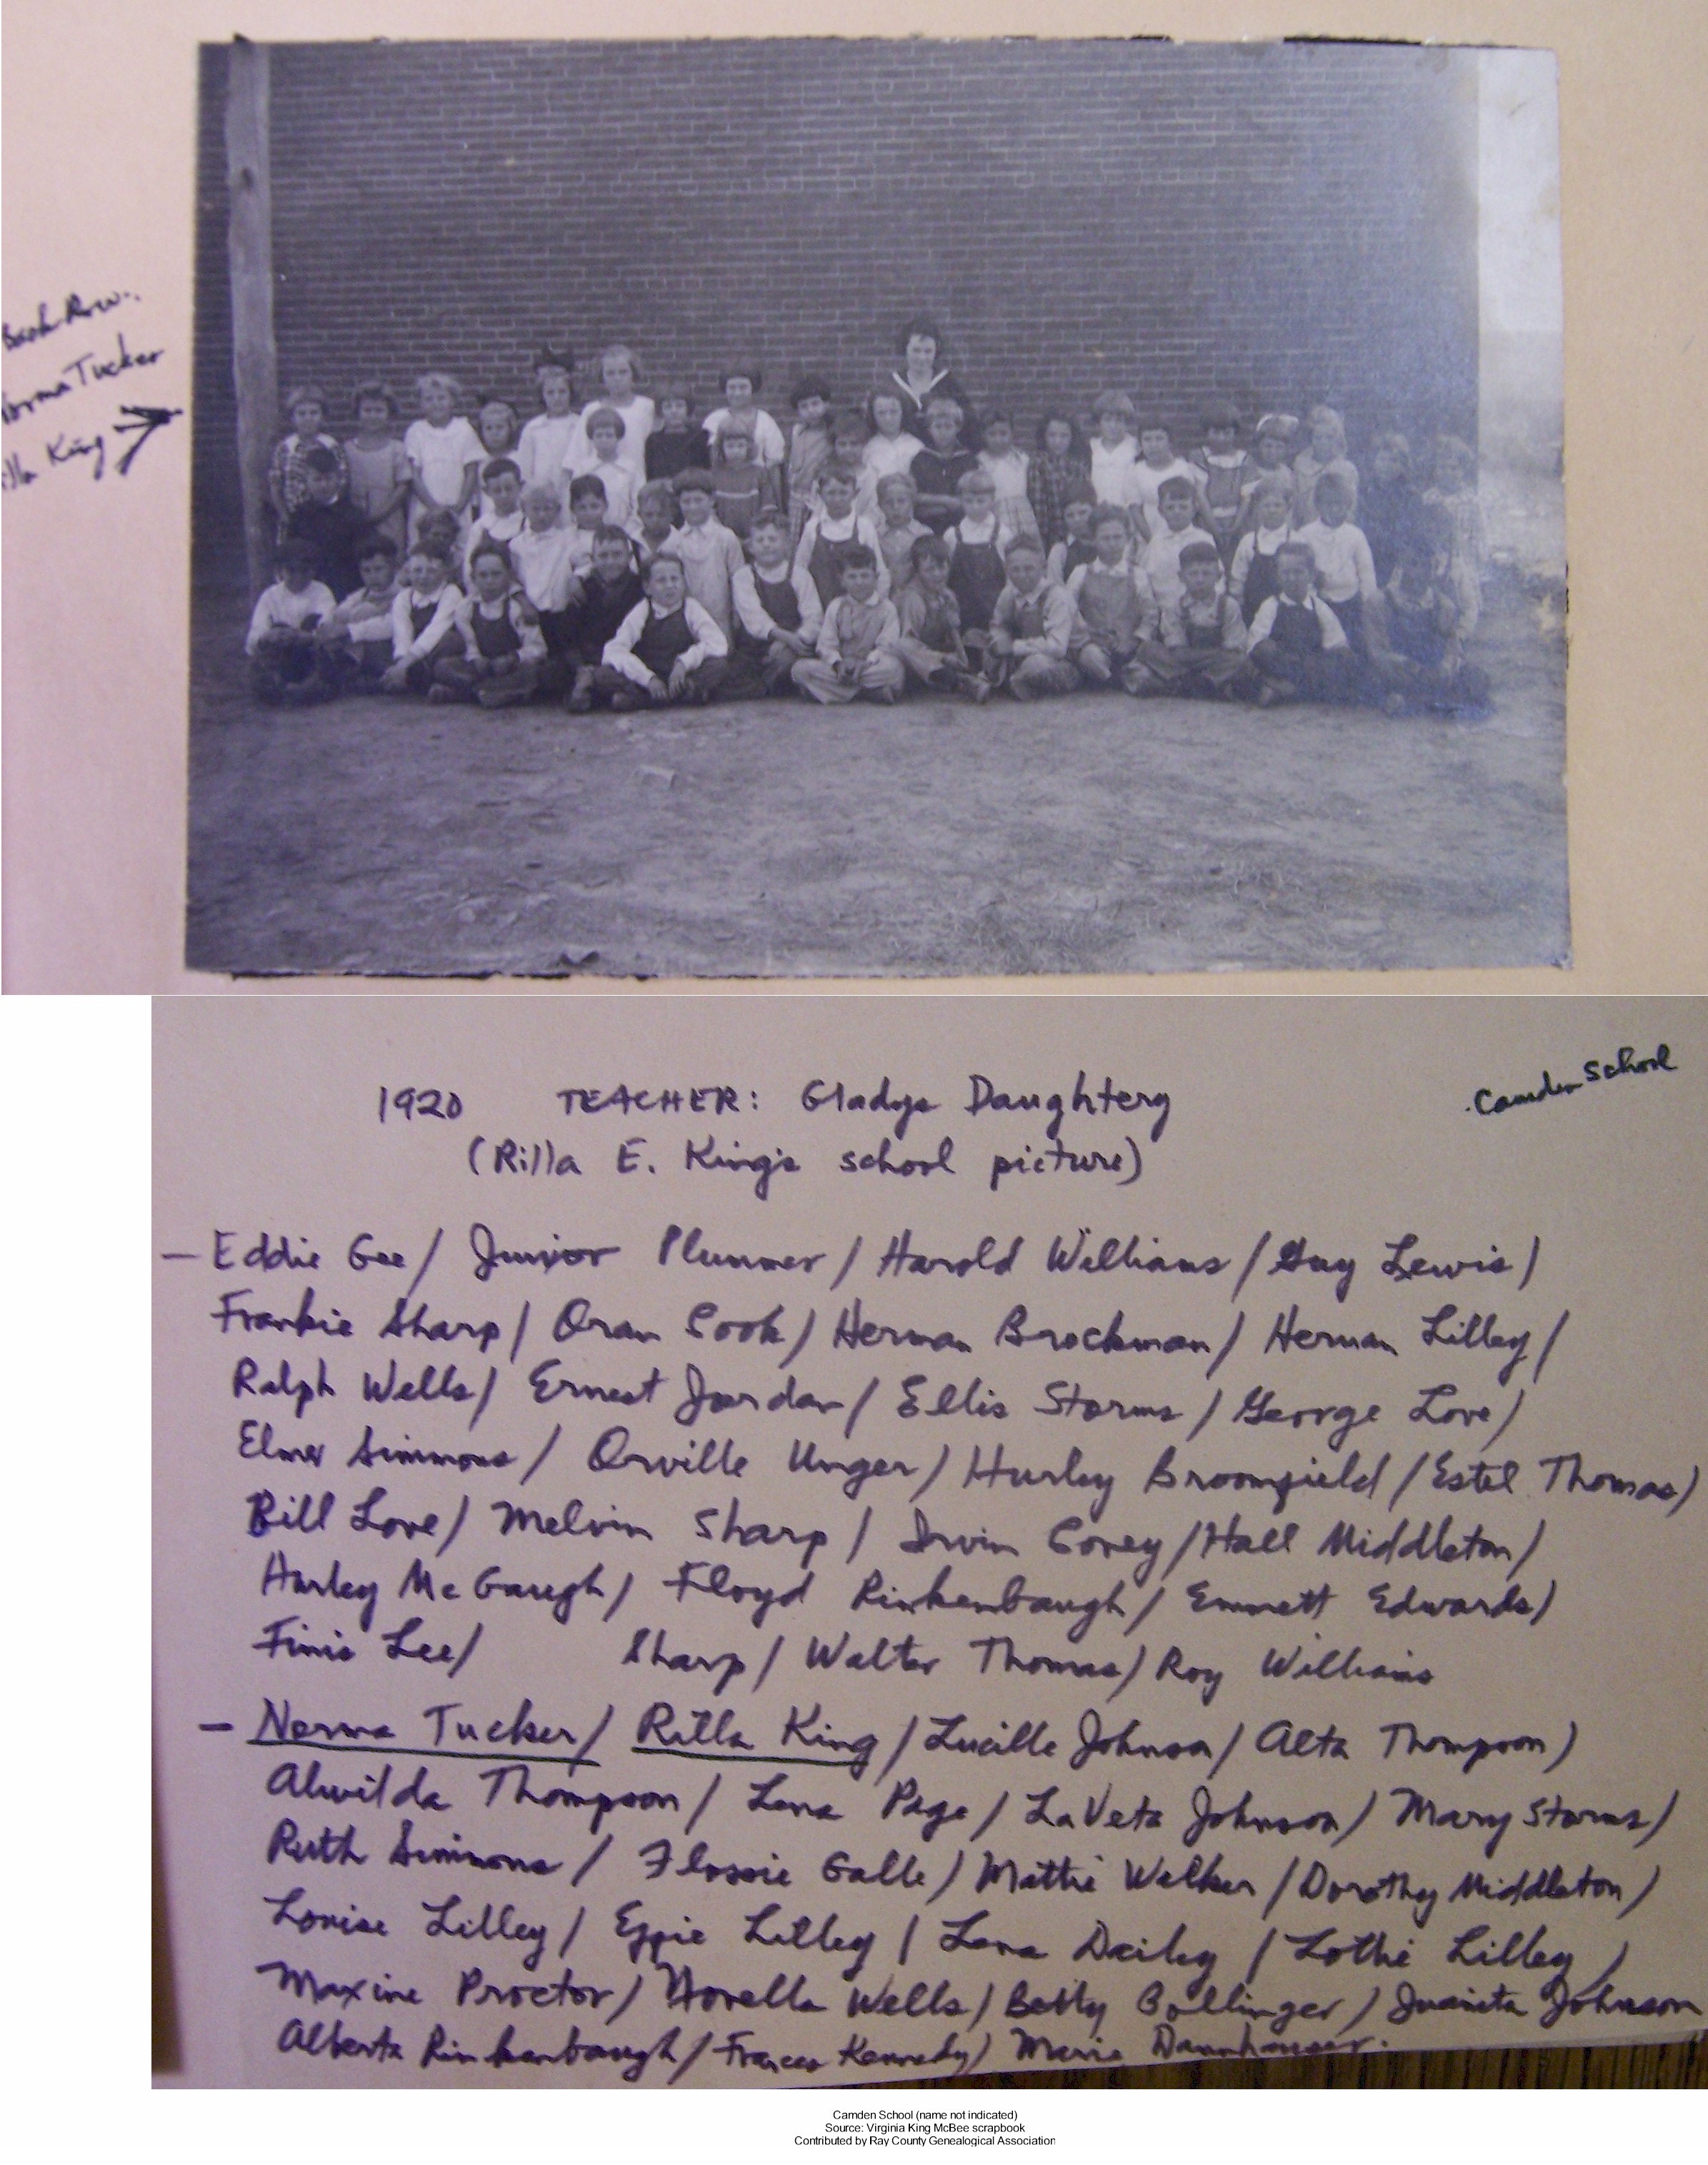 Back Row:
Norma Tucker
Rilla King
Camden School
1920 TEACHER: Gladys Daughtery
(Rilla E. King's school picture)
— Eddie Gee / Junior Plummer / Harold Williams / Guy Lewis /
Frankie Sharp / Oran Cook / Herman Brockman / Herman Lilley /
Ralph Wells / Ernest Jordan / Ellis Storms / George Love /
Elmer Simmons / Orville Unger / Hurley Broomfield / Estel Thomas /
Bill Love / Melvin Sharp / Irvin Coney / Hall Middleton /
Hurley McGaugh / Floyd Rinkenbaugh / Emmett Edwards /
Finis Lee / Sharp / Walter Thomas / Roy Williams
— Norma Tucker / Rilla King / Lucille Johnson / Alta Thompson /
Alwilda Thompson / Lena Page / LaVeta Johnson / Mary Storms /
Ruth Simmons / Flossie Galle / Mattie Walker / Dorothy Middleton /
Louise Lilley / Effie Lilley / Lena Dailey / Lottie Lilley /
Maxine Proctor / Novella Wells / Betty Bollinger / Juanita Johnson
Alberta Rinkenbaugh / Frances Kennedy / Marie Dannhauser.
Camden School (name not indicated)
Source: Virginia King McBee scrapbook
Contributed by Ray County Genealogical Association